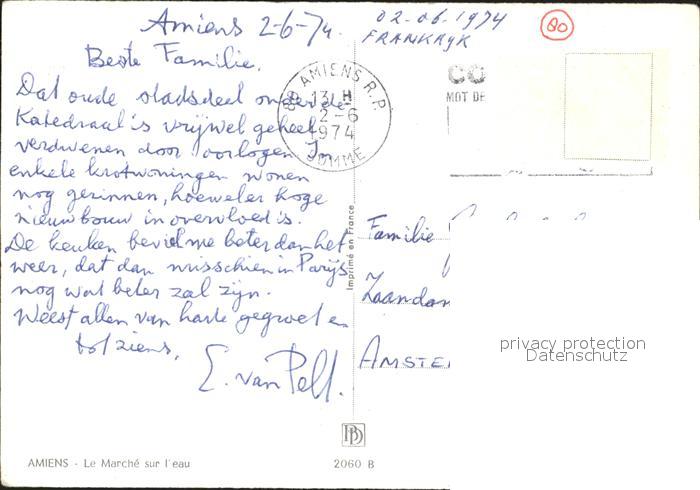 Amiens 2-6-74.
Beste Familie.
Dat oude stadsdeel onder de
Katedraal is vrijwel geheel
verdwenen door oorlogen. In
enkele krotwoningen wonen
nog gezinnen, hoewel er hoge
nieuwbouw in overvloed is.
De keuken beviel me beter dan het
weer, dat dan misschien in Parijs
nog wat beter zal zijn.
Weest allen van harte gegroet en
tot ziens,
E. van Pelt.
02-06-1974
FRANKRYK
80
80 AMIENS R.P.
13 H
2-6
1974
SOMME
MOT DE
Imprimé en France
Familie
Zaandam
AMSTE
privacy protection
Datenschutz
AMIENS - Le Marché sur l'eau
2060 B